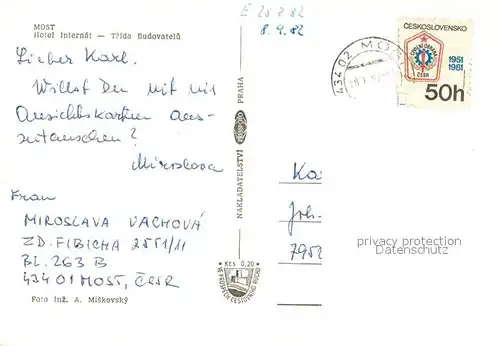 MOST
Hotel Internát — Třída Budovatelů
Lieber Karl.
Willst Du mit mir
Ansichtskarten aus-
zutauschen?
Miroslava
Frau
MIROSLAVA VACHOVÁ
ZD. FIBICHA 2551/11
BL. 263 B
43401 MOST, ČSSR
Foto inž. A. Miškovský
E 25 8 82
8. 9. 82
NAKLADATELSTVÍ PRAHA
Kčs 0,20
VE PROSPĚCH CESTOVNÍHO RUCHU
434 02 MOST
ČESKOSLOVENSKO
CIVILNÍ OBRANA
ČSSR
1951
1981
50h
Ka
Joh.
7952
privacy protection
Datenschutz